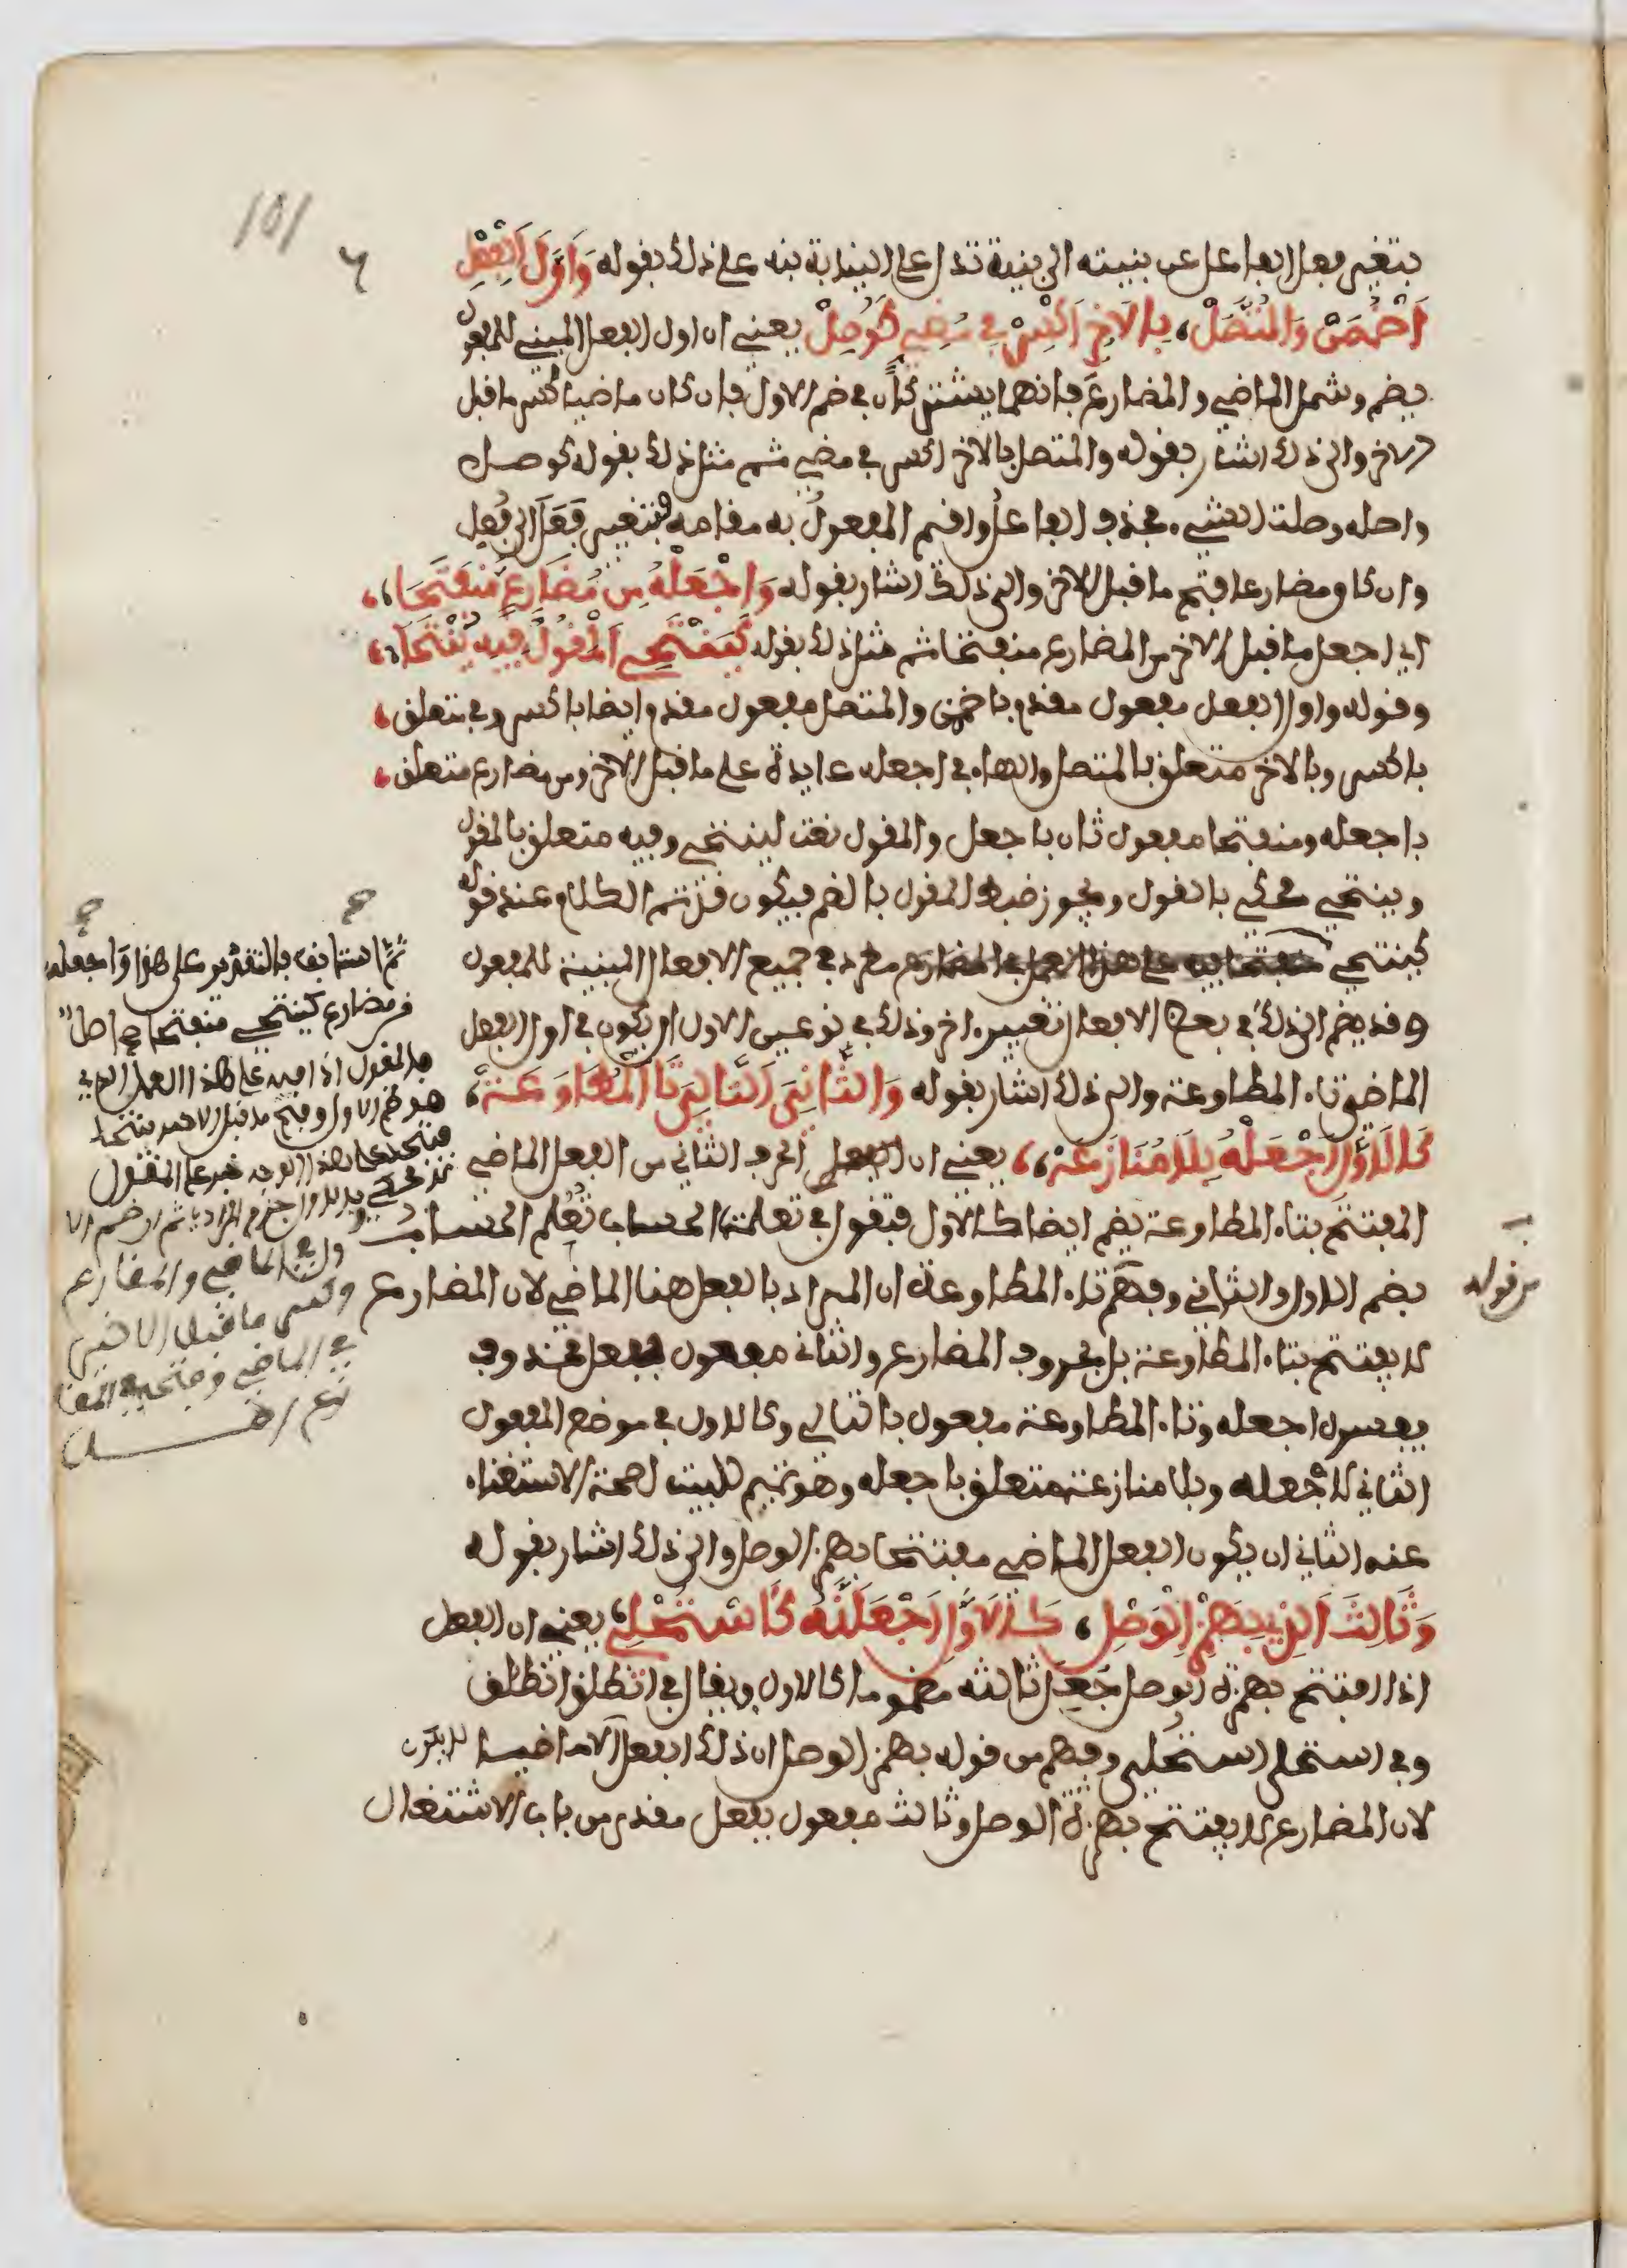 بتغيير فعل الفاعل عن بنيته الى بنية تدل على النيابة نبه على ذلك بقوله وَأَوَّلَ الْفِعْلِ
اضْمُمَنْ وَالْمُتَّصِلْ، بِالآخِرِ اكْسِرْ فِي مُضِيٍّ كَوُصِلْ يعني ان اول الفعل المبني للمفعول
يضم وشمل الماضي والمضارع فانهما يشتركان في ضم الاول فان كان ماضيا كسر ما قبل
الاخر والى ذلك اشار بقوله والمتصل بالاخر اكسر في مضي ثم مثل ذلك بقوله كوصل
واصله وصلت الشيء فحذف الفاعل واقيم المفعول به مقامه فتغير فَعَل الى فُعِل
وان كان مضارعا فتح ما قبل الاخر والى ذلك اشار بقوله وَاجْعَلْهُ مِن مُضَارِعٍ مُنفَتِحَا،
اي اجعل ما قبل الاخر من المضارع منفتحا ثم مثل ذلك بقوله كَيَنْتَحِي الْمَقُولُ فِيهِ يُنْتَحَى،
وقوله واول الفعل مفعول مقدم باضممن والمتصل مفعول مقدم ايضا باكسر وفي متعلق
باكسر وبالاخر متعلق بالمتصل والهاء في اجعله عايدة على ما قبل الاخر ومن مضارع متعلق
باجعله ومنفتحا مفعول ثان باجعل والمقول نعت لينتحي وفيه متعلق بالمقول
وينتحي محكي بالقول ويجوز ضبط المقول بالضم فيكون قد تم الكلام عند قوله
كينتحي مطرد في جميع الافعال المبنية للمفعول
وقد يضم الى ذلك في بعض الافعال تغيير اخر وذلك في نوعين الاول ان يكون في اول الفعل
الماضي تاء المطاوعة والى ذلك اشار بقوله وَالثَّانِيَ التَّالِيَ تَا الْمُطَاوَعَهْ،
كَالأَوَّلِ اجْعَلْهُ بِلاَ مُنَازَعَهْ، يعني ان الحرف الثاني من الفعل الماضي
المفتتح بتاء المطاوعة يضم ايضا كالاول فيقول في تعلمت الحساب تُعُلم الحساب
بضم الاول والثاني وفهم تاء المطاوعة ان المراد بالفعل هنا الماضي لان المضارع
لا يفتتح بتاء المطاوعة بل بحروف المضارع والثاني مفعول بفعل محذوف
يفسره اجعله وتاء المطاوعة مفعول بالتالي وكالاول في موضع المفعول
الثاني لاجعله وبلا منازعه متعلق باجعله وهو تتميم للبيت لصحة الاستغناء
عنه الثاني ان يكون الفعل الماضي مفتتحا بهمز الوصل والى ذلك اشار بقوله
وَثَالِثَ الَّذِي بِهَمْزِ الْوَصْلِ، كَالأَوَّلِ اجْعَلَنَّهُ كَاسْتُحْلِي، يعني ان الفعل
اذا افتتح بهمزة الوصل جُعل ثالثه مضموما كالاول ويقال في انطلق انطلق
وفي استحلى استُحلي وفهم من قوله بهمز الوصل ان ذلك الفعل الا ماضيا لا يكون
لان المضارع لا يفتتح بهمزة الوصل وثالث مفعول بفعل مقدر من باب الاشتغال
من قوله
ثم استانف بالتقدير على هذا واجعله
من مضارع كينتحي منفتحا
المقول فيه على هذا العمل الذي
هو ضم الاول وفتح ما قبل الاخر ينتحا
الماضي والمضارع
وكسر ما قبل الاخير
في الماضي وفتحه في المضا
رع
101